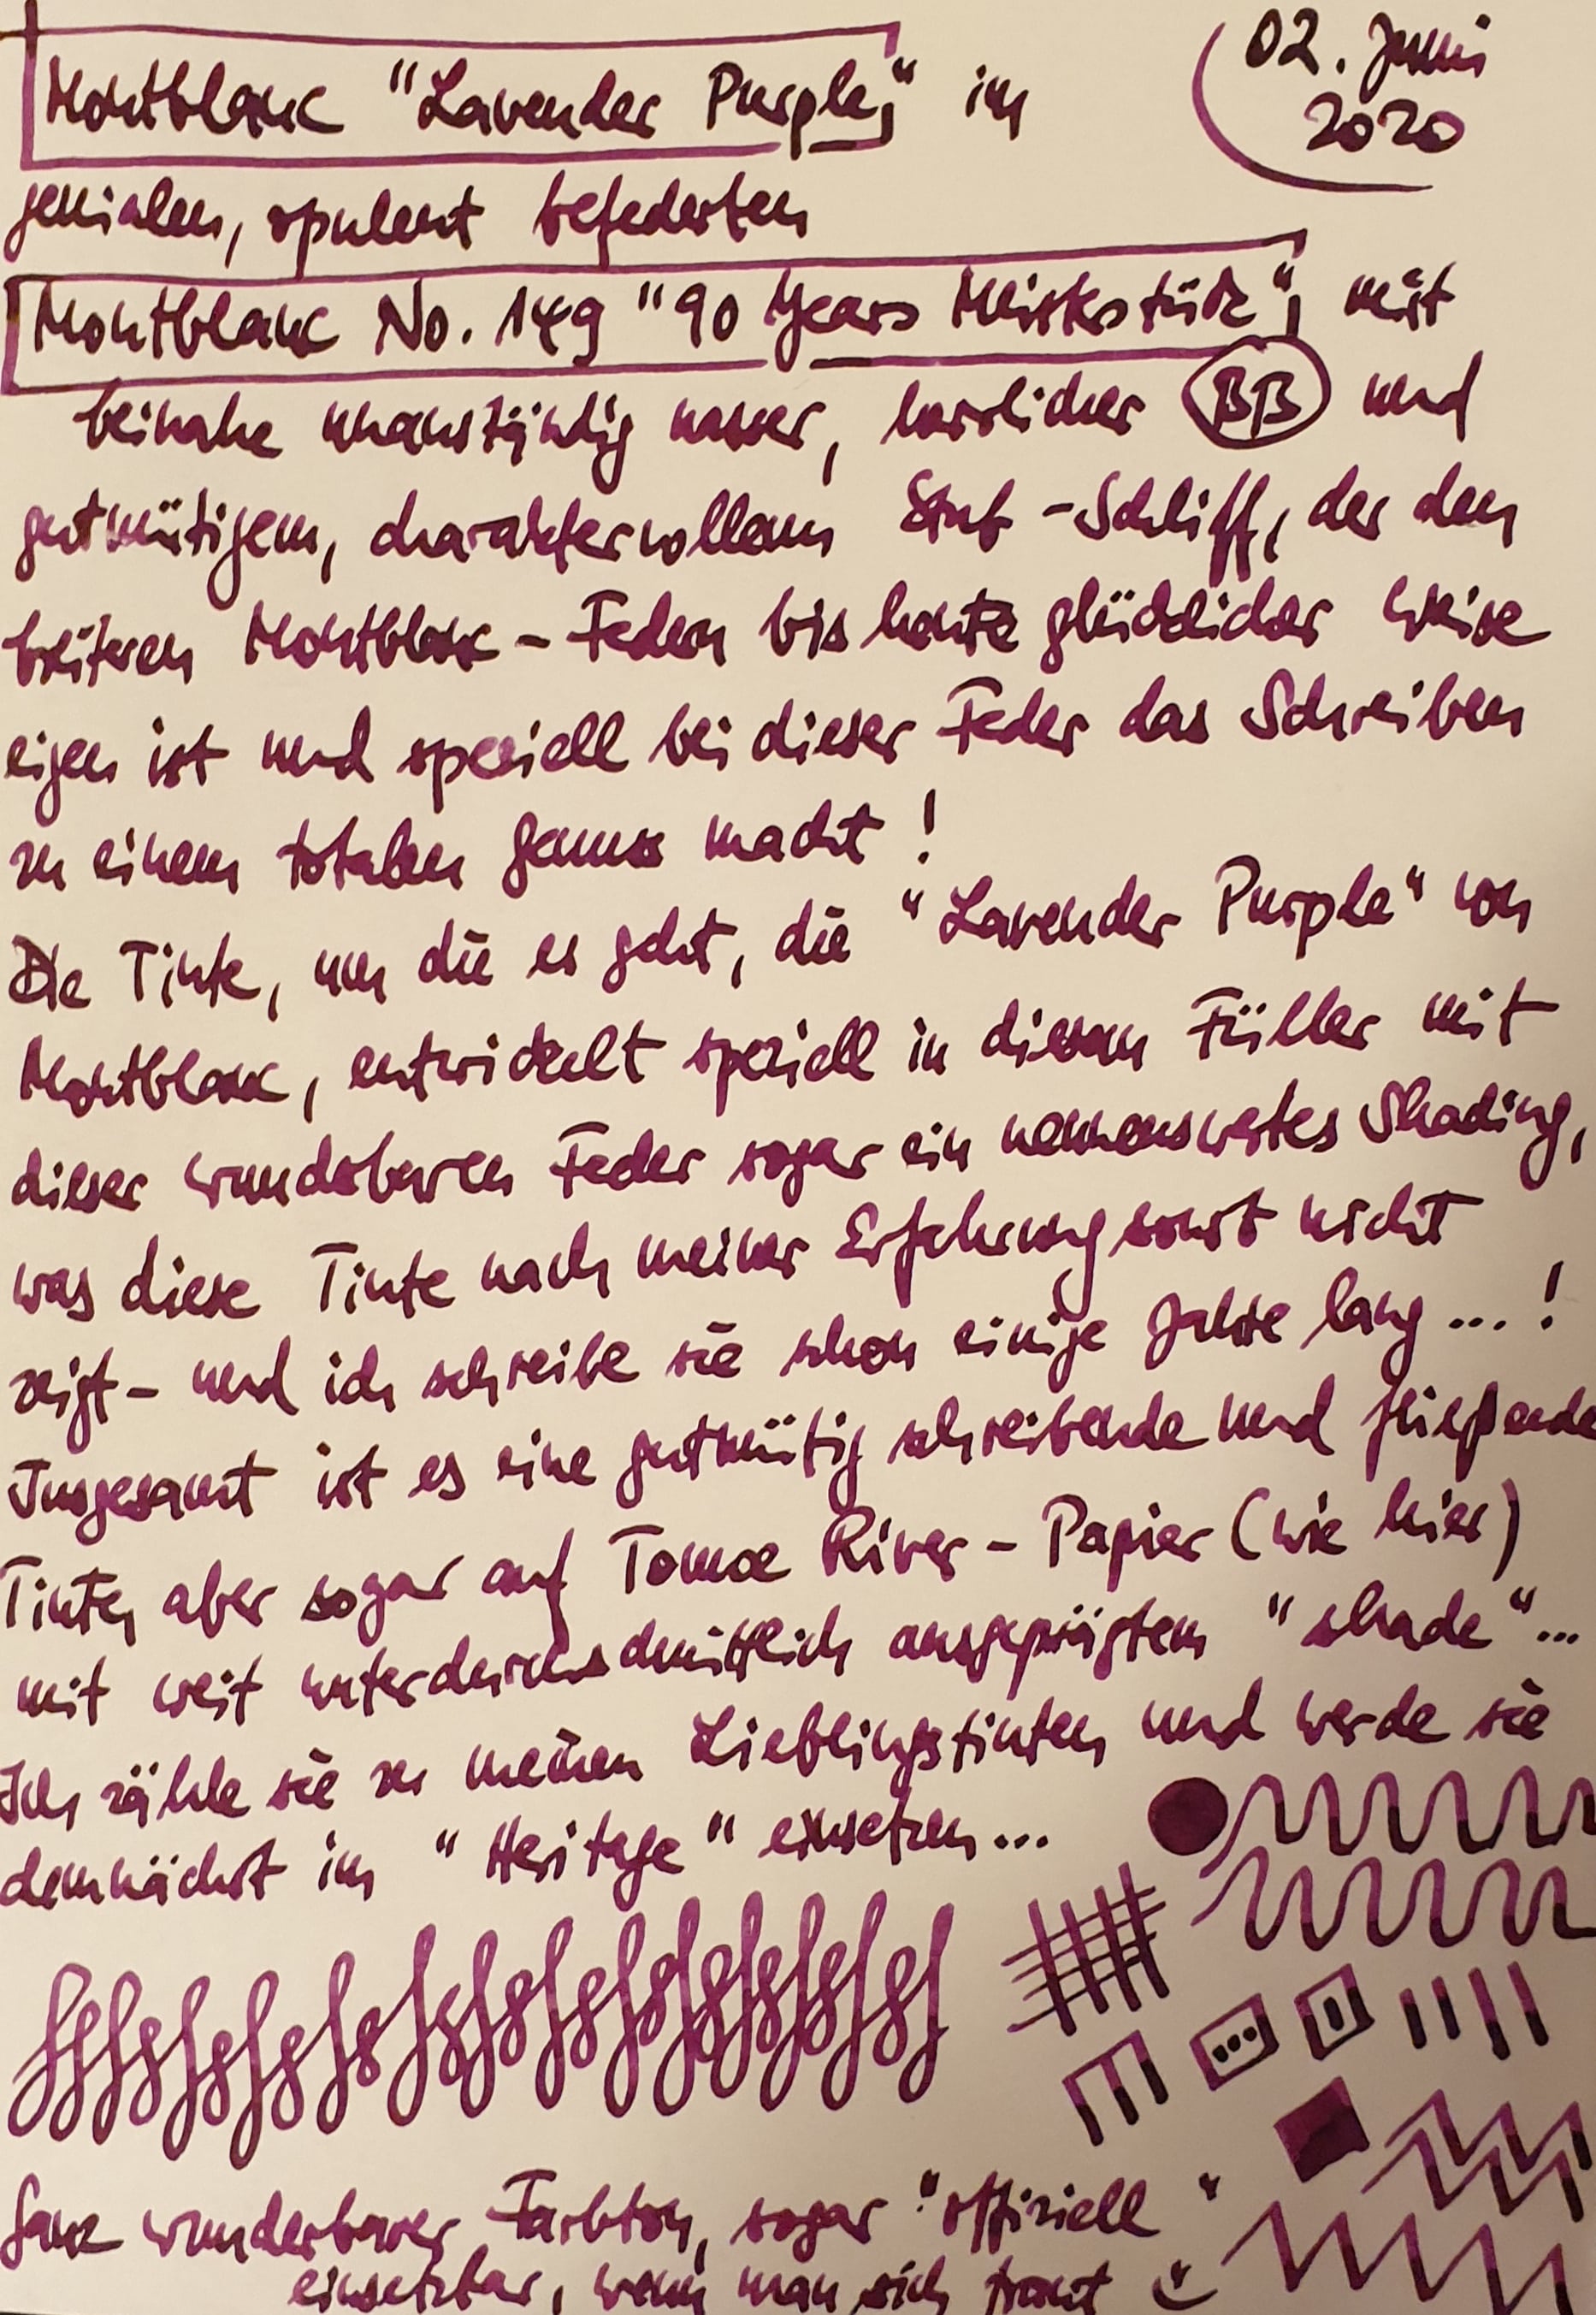 Montblanc "Lavender Purple", im
02. Juni
2020
genialen, opulent befederten
Montblanc No. 149 "90 Years Meisterstück", mit
beinahe unanständig nasser, herrlicher BB und
gutmütigem, charaktervollem Stub-Schliff, der den
breiteren Montblanc-Federn bis heute glücklicher Weise
eigen ist und speziell bei dieser Feder das Schreiben
zu einem totalen Genuss macht!
Die Tinte, um die es geht, die "Lavender Purple" von
Montblanc, entwickelt speziell in diesem Füller mit
dieser wunderbaren Feder sogar ein nennenswertes Shading,
was diese Tinte nach meiner Erfahrung sonst nicht
zeigt - und ich schreibe sie schon einige Jahre lang ...!
Insgesamt ist es eine gutmütig schreibende und fließende
Tinte, aber sogar auf Tomoe River-Papier (wie hier)
mit weit unterdurchschnittlich ausgeprägtem "shade"...
Ich zähle sie zu meinen Lieblingstinten und werde sie
demnächst im "Heritage" einsetzen...
Ganz wunderbarer Farbton, sogar "offiziell"
einsetzbar, wenn man sich traut